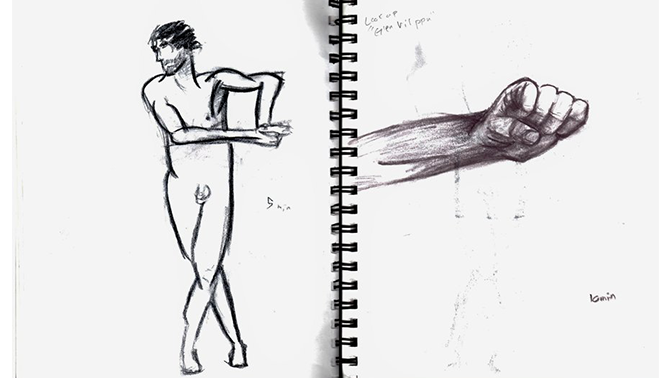 5 min
Look up
"Glen Vilppu"
10min